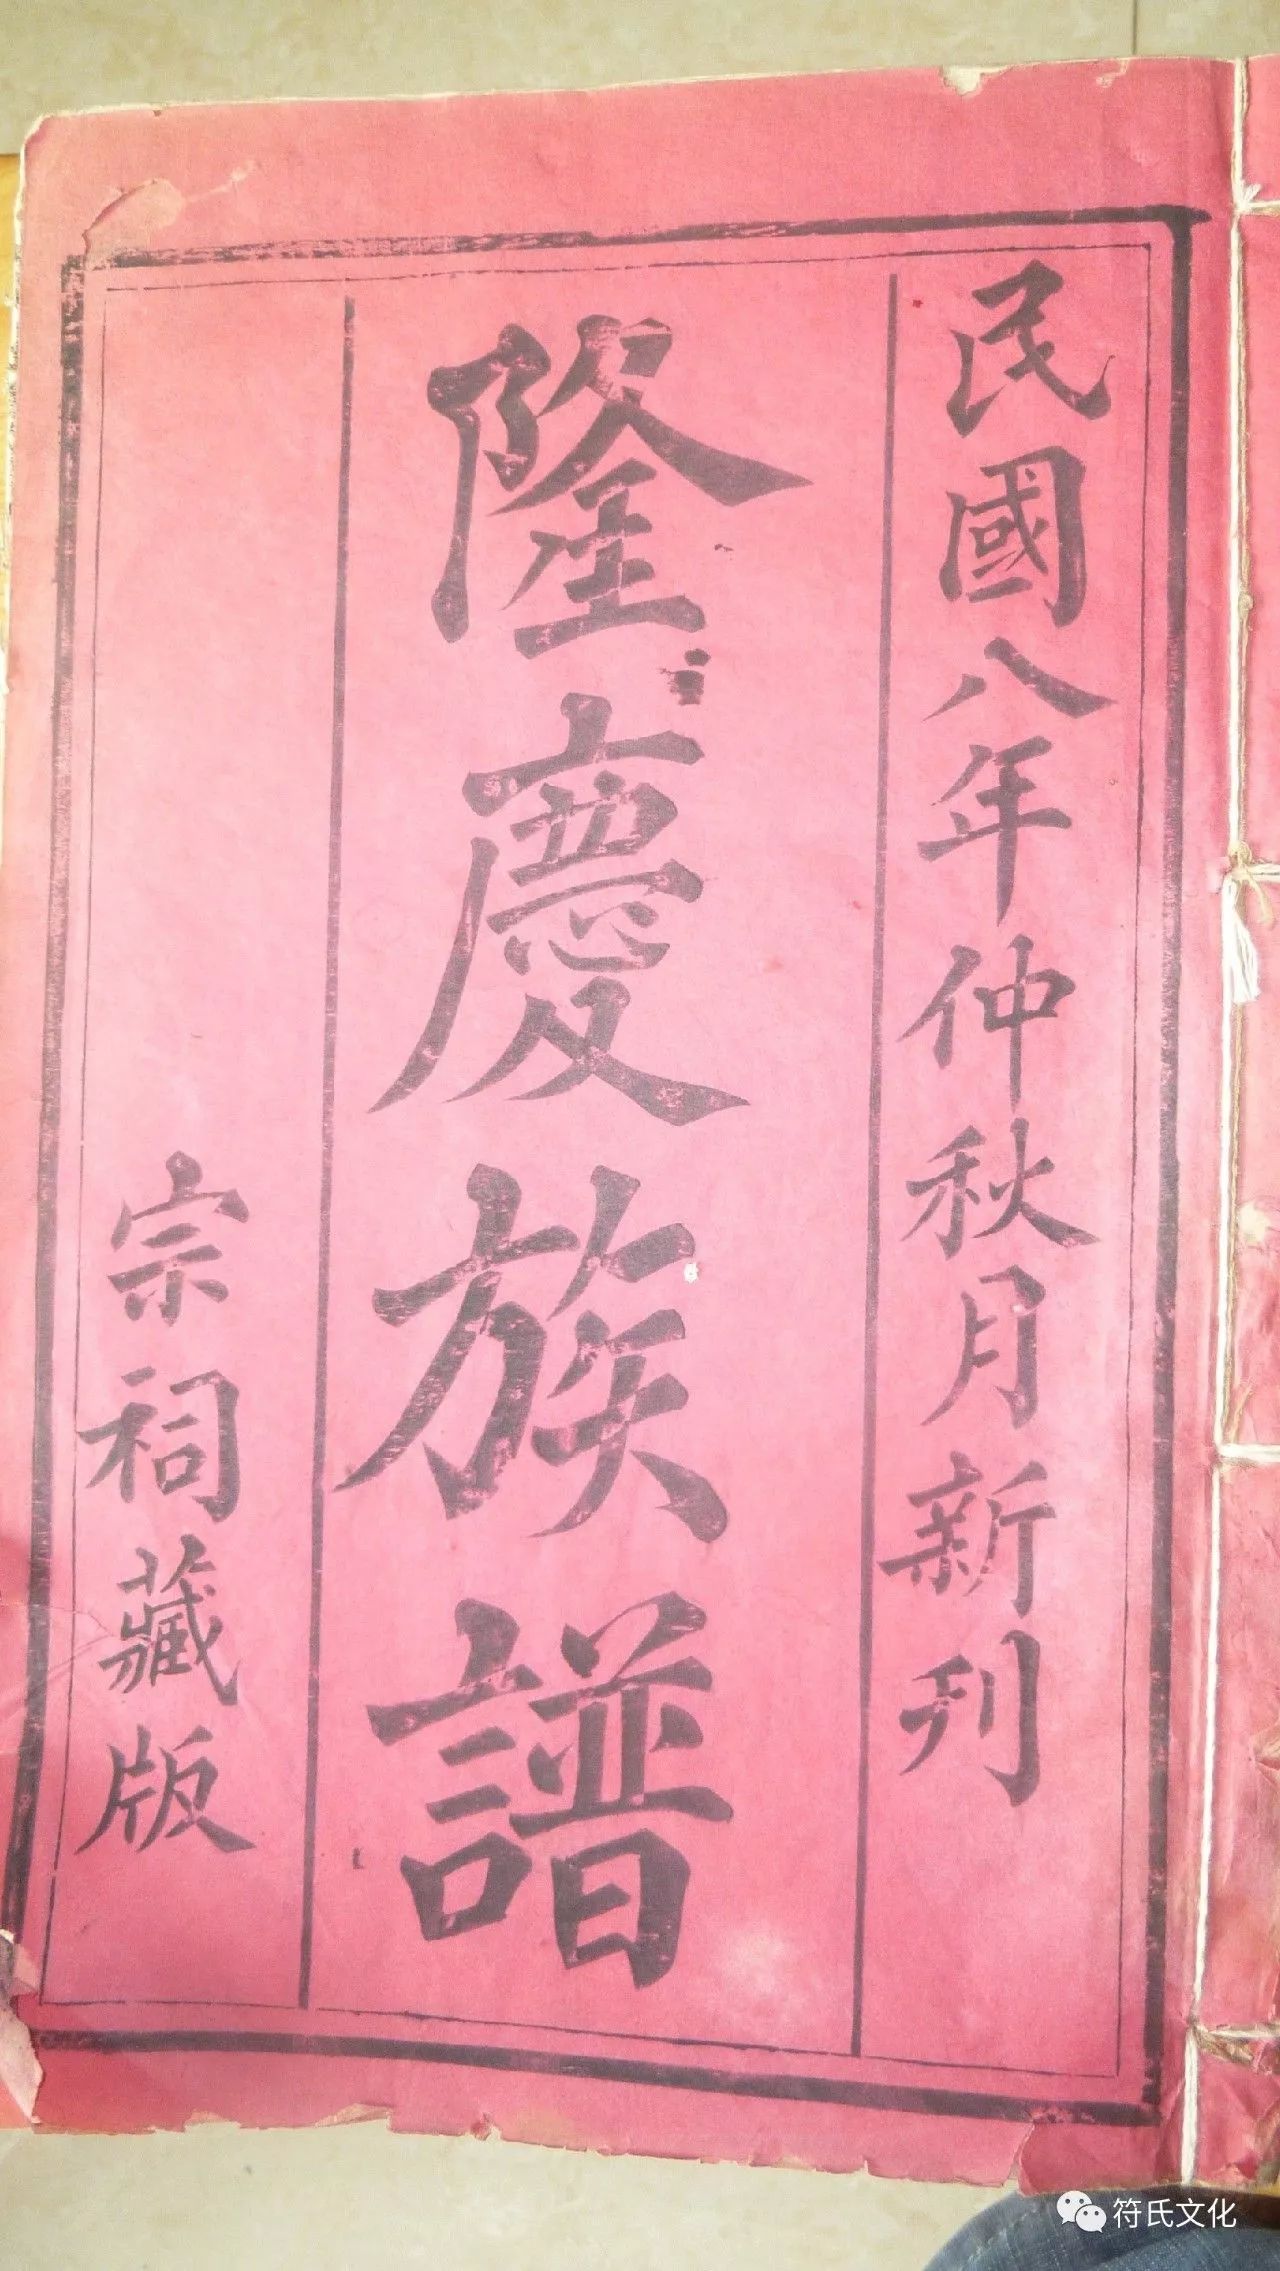 民國八年仲秋月新刊
隆慶族譜
宗祠藏版
符氏文化